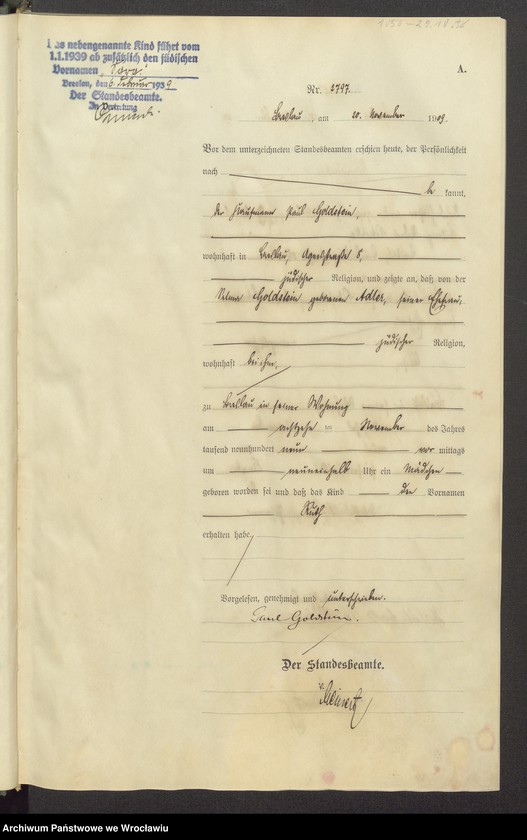 Das nebengenannte Kind führt vom
1.1.1939 ab zusätzlich den jüdischen
Vornamen „Sara“
Breslau, den 6. Februar 1939
Der Standesbeamte.
In Vertretung
A.
Nr. 2797.
Breslau, am 20. November 1909.
Vor dem unterzeichneten Standesbeamten erschien heute, der Persönlichkeit
nach
be kannt,
der Kaufmann Paul Goldstein,
wohnhaft in Breslau, 8,
jüdischer Religion, und zeigte an, daß von der
Goldstein geborenen Adler, seiner Ehefrau,
jüdischer Religion,
wohnhaft bei ihm,
zu Breslau in seiner Wohnung
am achtzehn ten November des Jahres
tausend neunhundert neun vor mittags
um neuneinhalb Uhr ein Mädchen
geboren worden sei und daß das Kind den Vornamen
Ruth
erhalten habe.
Vorgelesen, genehmigt und unterschrieben.
Paul Goldstein.
Der Standesbeamte.
Archiwum Państwowe we Wrocławiu